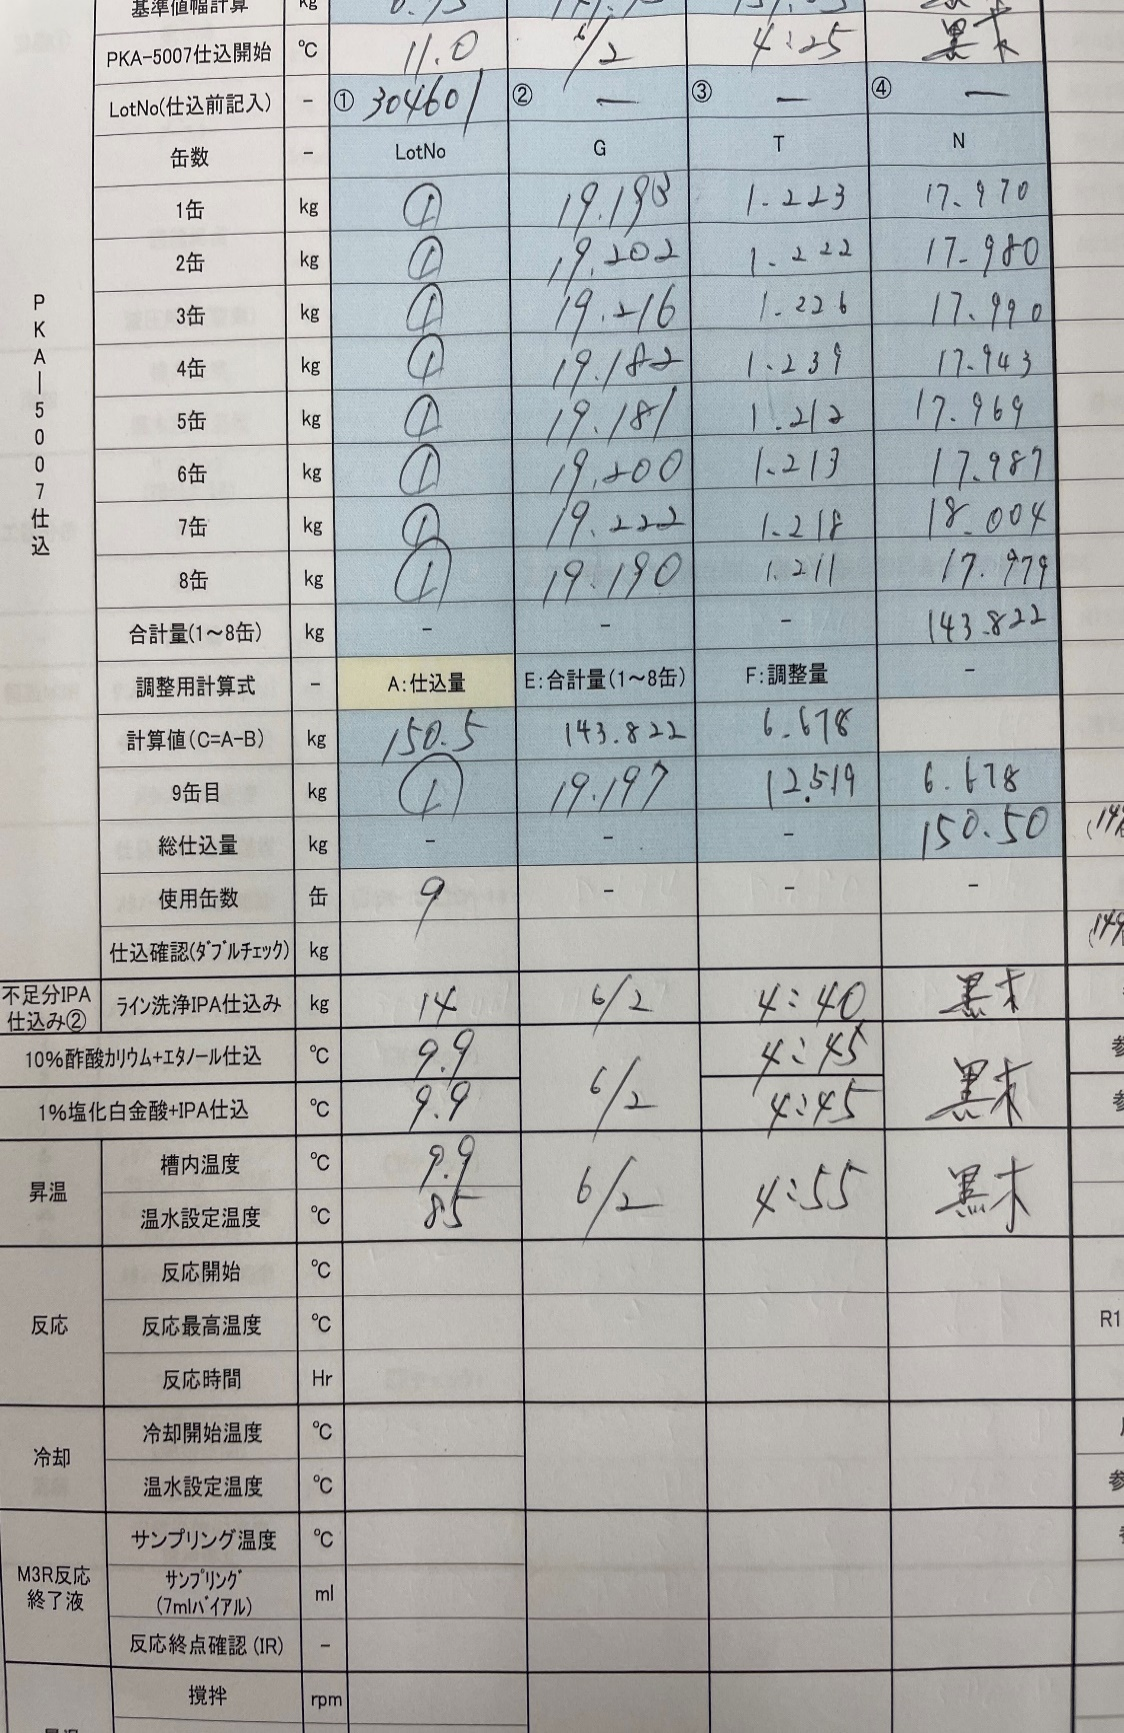 基準値幅計算 kg
PKA-5007仕込開始 ℃ 11.0 6/2 4:25 黒木
LotNo(仕込前記入) - ① 304601 ② ー ③ ー ④ ー
缶数 - LotNo G T N
1缶 kg ① 19.193 1.223 17.970
2缶 kg ① 19.202 1.222 17.980
3缶 kg ① 19.216 1.226 17.990
4缶 kg ① 19.182 1.239 17.943
5缶 kg ① 19.181 1.212 17.969
6缶 kg ① 19.200 1.213 17.987
7缶 kg ① 19.222 1.218 18.004
8缶 kg ① 19.190 1.211 17.979
PKA-5007仕込
合計量(1~8缶) kg - - - 143.822
調整用計算式 - A:仕込量 E:合計量(1~8缶) F:調整量 -
計算値(C=A-B) kg 150.5 143.822 6.678
9缶目 kg ① 19.197 12.519 6.678
総仕込量 kg - - 150.50
使用缶数 缶 9 - - -
仕込確認(ﾀﾞﾌﾞﾙﾁｪｯｸ) kg
不足分IPA仕込み② ライン洗浄IPA仕込み kg 14 6/2 4:40 黒木
10%酢酸ｶﾘｳﾑ+ｴﾀﾉｰﾙ仕込 ℃ 9.9 6/2 4:45 黒木
1%塩化白金酸+IPA仕込 ℃ 9.9 4:45
昇温 槽内温度 ℃ 9.9 6/2 4:55 黒木
温水設定温度 ℃ 85
反応 反応開始 ℃
反応最高温度 ℃ R1
反応時間 Hr
冷却 冷却開始温度 ℃
温水設定温度 ℃
M3R反応終了液 サンプリング温度 ℃
ｻﾝﾌﾟﾘﾝｸﾞ
(7mlﾊﾞｲｱﾙ) ml
反応終点確認(IR) -
撹拌 rpm